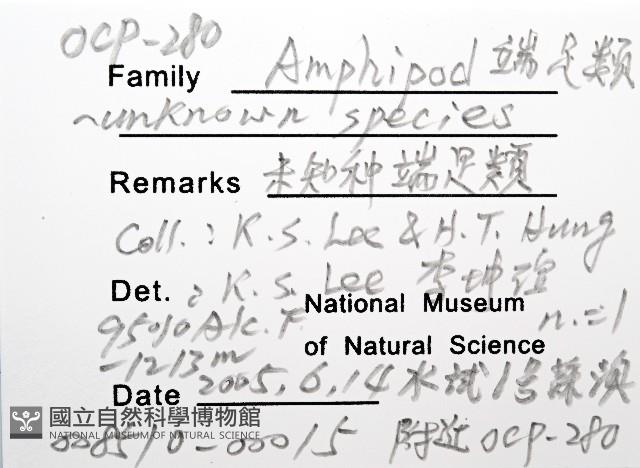 OCP-280
Family Amphipod 端足類
~unknown species
Remarks 未知种端足類
Coll.: K.S. Lee & H.T. Hung
Det.: K.S. Lee 李坤瑄
National Museum
95%Alc. n.=1
-1213m of Natural Science
Date 2005.6.14 水試1号蘇澳
國立自然科學博物館
NATIONAL MUSEUM OF NATURAL SCIENCE
006570-00015 附近 OCP-280